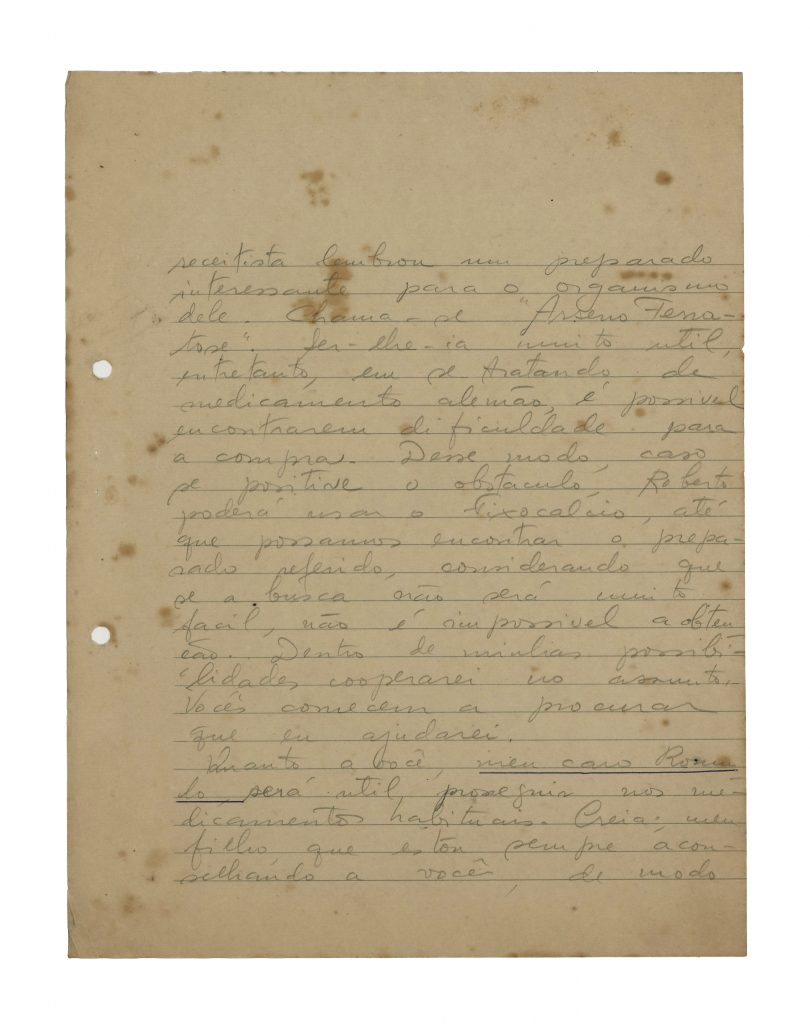 receitista lembrou um preparado
interessante para o organismo
dele. Chama-se "Arseno Ferra-
tose". Ser-lhe-ia muito util,
entretanto, em se tratando de
medicamento alemão, é possivel
encontrarem dificuldade para
a compra. Desse modo, caso
se positive o obstaculo, Roberto
poderá usar o Fixocalcio, até
que possamos encontrar o prepa-
rado referido, considerando que
se a busca não será muito
facil, não é impossivel a obten
ção. Dentro de minhas possibi-
lidades cooperarei no assunto.
Vocês comecem a procurar
que eu ajudarei.
Quanto a você, meu caro Romu
lo será util, proseguir nos me-
dicamentos habituais. Creia, meu
filho que estou sempre acon-
selhando a você, de modo